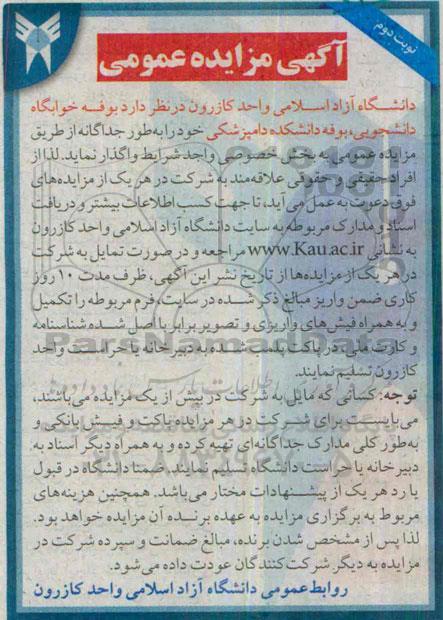 نوبت دوم
آگهی مزایده عمومی
دانشگاه آزاد اسلامی واحد کازرون در نظر دارد بوفه خوابگاه
دانشجویی، بوفه دانشکده دامپزشکی خود را به‌طور جداگانه از طریق
مزایده عمومی به بخش خصوصی واجد شرایط واگذار نماید. لذا از
افراد حقیقی و حقوقی علاقه‌مند به شرکت در هر یک از مزایده‌های
فوق دعوت به عمل می‌آید، تا جهت کسب اطلاعات بیشتر و دریافت
اسناد و مدارک مربوطه به سایت دانشگاه آزاد اسلامی واحد کازرون
به نشانی www.Kau.ac.ir مراجعه و در صورت تمایل به شرکت
در هر یک از مزایده‌ها از تاریخ نشر این آگهی، ظرف مدت ۱۰ روز
کاری ضمن واریز مبالغ ذکر شده در سایت، فرم مربوطه را تکمیل
و به همراه فیش‌های واریزی و تصویر برابر با اصل شده شناسنامه
و کارت ملی در پاکت پلمب شده به دبیرخانه یا حراست واحد
کازرون تسلیم نمایند.
توجه: کسانی که مایل به شرکت در بیش از یک مزایده می‌باشند،
می‌بایست برای شرکت در هر مزایده پاکت و فیش بانکی و
به‌طور کلی مدارک جداگانه‌ای تهیه کرده و به همراه دیگر اسناد به
دبیرخانه یا حراست دانشگاه تسلیم نمایند. ضمنا دانشگاه در قبول
یا رد هر یک از پیشنهادات مختار می‌باشد. همچنین هزینه‌های
مربوط به برگزاری مزایده به عهده برنده آن مزایده خواهد بود.
لذا پس از مشخص شدن برنده، مبالغ ضمانت و سپرده شرکت در
مزایده به دیگر شرکت‌کنندگان عودت داده می‌شود.
روابط عمومی دانشگاه آزاد اسلامی واحد کازرون
ParsNamadData